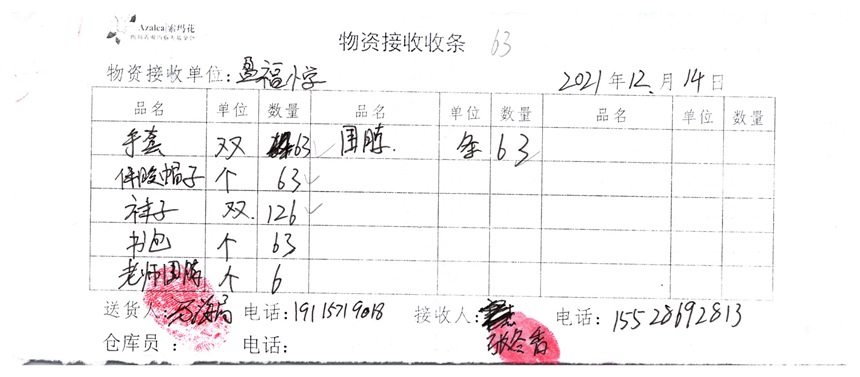 Azalea 索玛花
物资接收收条 63
物资接收单位:盈福小学 2021年12月14日
品名 单位 数量 品名 单位 数量 品名 单位 数量
手套 双 63 围脖. 条 63
保暖帽子 个 63
袜子 双. 126
书包 个 63
老师围脖 个 6
送货人: 电话:19115719018 接收人: 张冬香 电话: 15528692813
仓库员: 电话: